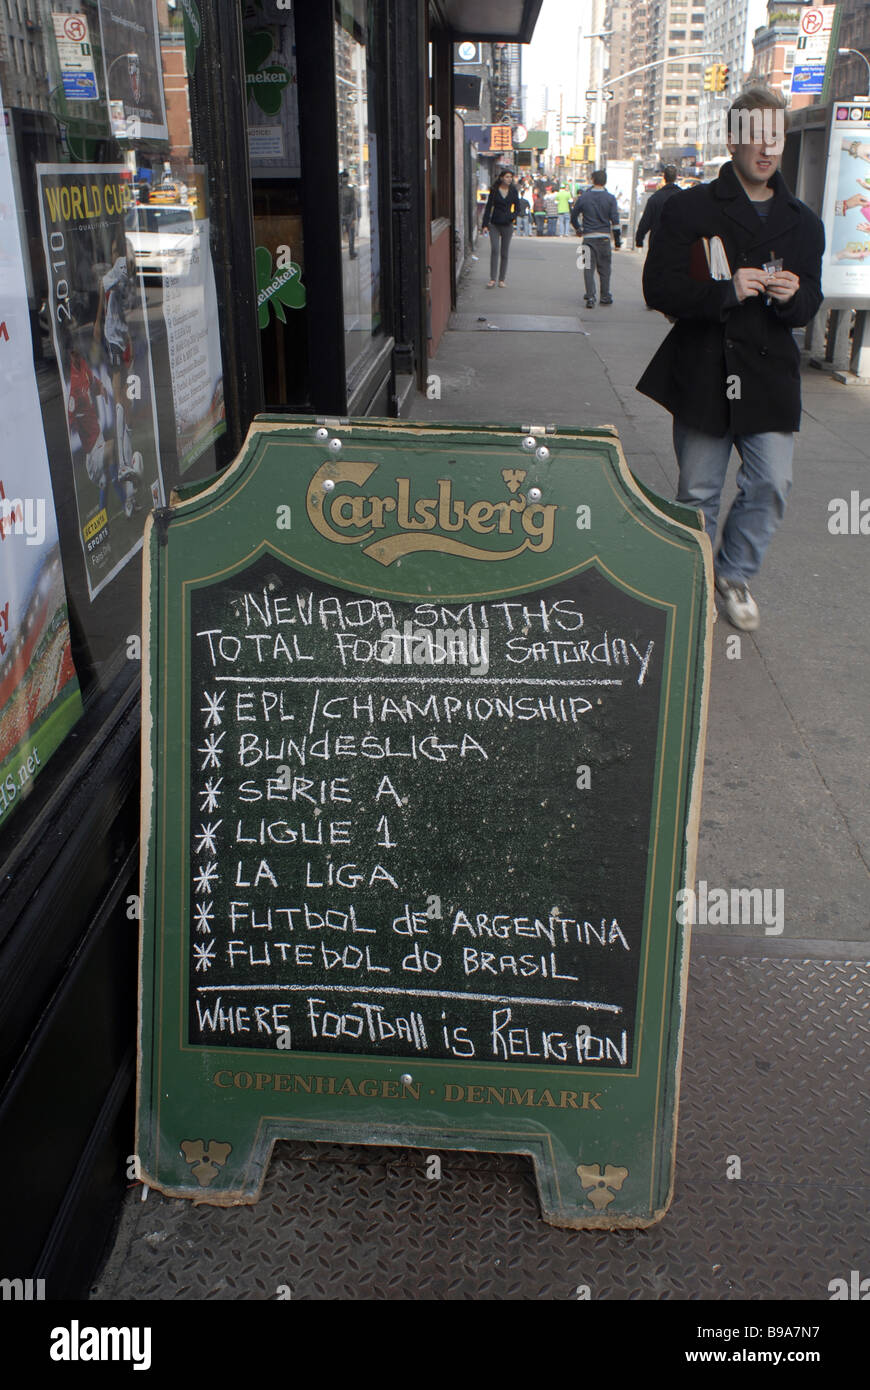 WORLD CUP
QUALIFIERS
2010
SETANTA
SPORTS
Heineken
Heineken
NOTICE!
Carlsberg
NEVADA SMITHS
TOTAL FOOTBALL SATURDAY
* EPL/CHAMPIONSHIP
* BUNDESLIGA
* SERIE A
* LIGUE 1
* LA LIGA
* FUTBOL de ARGENTINA
* FUTEBOL do BRASIL
WHERE FOOTBALL iS RELIGION
COPENHAGEN · DENMARK
HS.net
alamy
Image ID: B9A7N7
www.alamy.com